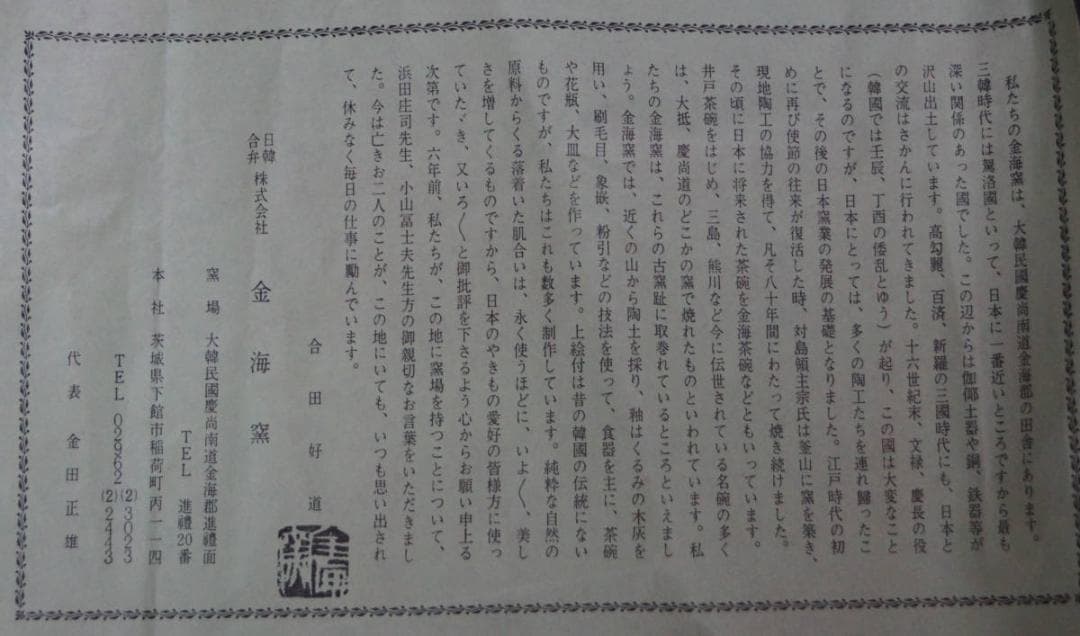 私たちの金海窯は、大韓民國慶尚南道金海郡の田舎にあります。
三韓時代には駕洛國といって、日本に一番近いところですから最も
深い関係のあった國でした。この辺からは伽倻土器や銅、鉄器等が
沢山出土しています。高勾麗、百済、新羅の三國時代にも、日本と
の交流はさかんに行われてきました。十六世紀末、文禄、慶長の役
(韓國では壬辰、丁酉の倭乱とゆう)が起り、この國は大変なこと
になるのですが、日本にとっては、多くの陶工たちを連れ歸ったこ
とで、その後の日本窯業の発展の基礎となりました。江戸時代の初
めに再び使節の往来が復活した時、対島領主宗氏は釜山に窯を築き、
現地陶工の協力を得て、凡そ八十年間にわたって焼き続けました。
その頃に日本に将来された茶碗を金海茶碗などともいっています。
井戸茶碗をはじめ、三島、熊川など今に伝世されている名碗の多く
は、大抵、慶尚道のどこかの窯で焼れたものといわれています。私
たちの金海窯は、これらの古窯趾に取巻れているところといえまし
ょう。金海窯では、近くの山から陶土を採り、釉はくるみの木灰を
用い、刷毛目、象嵌、粉引などの技法を使って、食器を主に、茶碗
や花瓶、大皿などを作っています。上絵付は昔の韓國の伝統にない
ものですが、私たちはこれも数多く制作しています。純粋な自然の
原料からくる落着いた肌合いは、永く使うほどに、いよ〱、美し
さを増してくるものですから、日本のやきもの愛好の皆様方に使っ
ていたゞき、又いろ〱と御批評を下さるよう心からお願い申上る
次第です。六年前、私たちが、この地に窯場を持つことについて、
浜田庄司先生、小山冨士夫先生方の御親切なお言葉をいただきまし
た。今は亡きお二人のことが、この地にいても、いつも思い出され
て、休みなく毎日の仕事に励んでいます。
合田好道
日韓合弁 株式会社 金海窯
窯場 大韓民國慶尚南道金海郡進禮面
TEL 進禮20番
本社 茨城県下館市稲荷町丙一一四
TEL 02962(2)3023
(2)2443
代表 金田正雄
金海窯